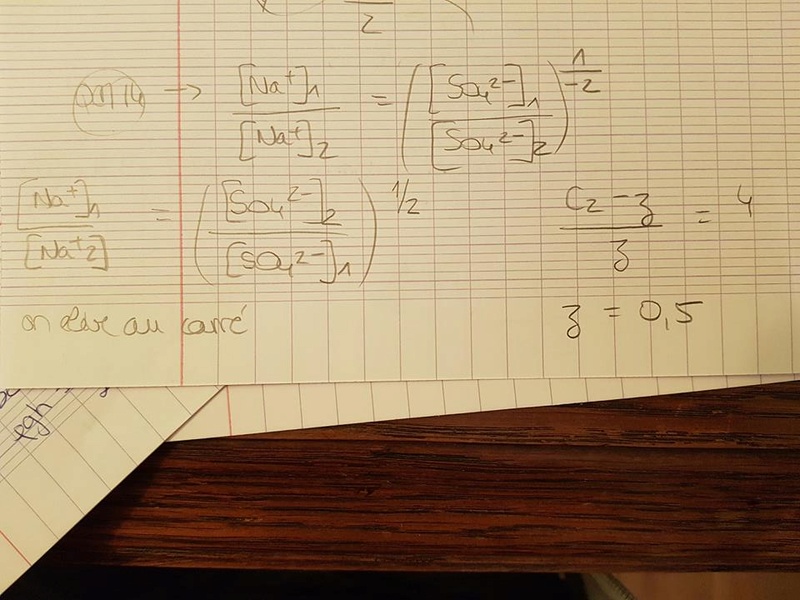 2
QCM 14 → [Na⁺]₁ / [Na⁺]₂ = ([SO₄²⁻]₁ / [SO₄²⁻]₂)^(1/-2)
[Na⁺]₁ / [Na⁺2] = ([SO₄²⁻]₂ / [SO₄²⁻]₁)^1/2
C₂ - z / z = 4
on élève au carré
z = 0,5